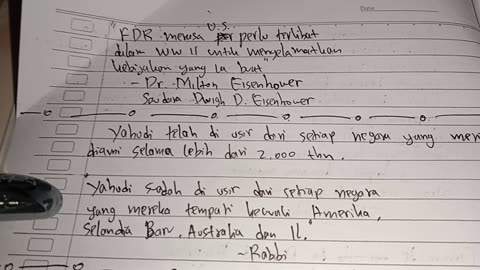 Date:
U.S.
"FDR merasa perlu terlibat
dalam WW II untuk menyelamatkan
kebijakan yang ia buat"
- Dr. Milton Eisenhower
Saudara Dwigh D. Eisenhower
Yahudi telah di usir dari setiap negara yang mer
diami selama lebih dari 2.000 thn.
"Yahudi sudah di usir dari setiap negara
yang mereka tempati kecuali Amerika,
Selandia Baru, Australia dan
- Rabbi